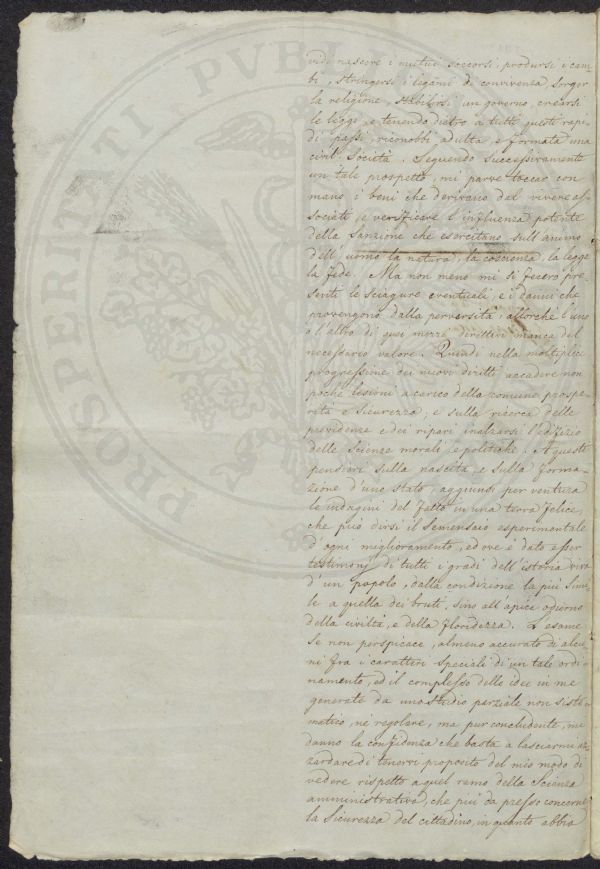 PROSPERITATI PVBLI
vidi nascere i mutui soccorsi, prodursi i cam-
bi, stringersi i legami di convivenza, sorger
la religione, stabilirsi un governo, crearsi
le leggi, e tenendo dietro a tutti questi rapi-
di passi, riconobbi adulta, e formata una
civil Società. Seguendo successivamente
un tale prospetto, mi parve toccar con
mano i beni che derivano dal vivere as-
sociati, e verificare l'influenza potente
della Sanzione che esercitano sull'animo
dell'uomo la natura, la coscienza, la legge
la Fede. Ma non meno mi si fecero pre-
senti le sciagure eventuali, e i danni che
provengono dalla perversità, allorchè l'uno
o l'altro di quei mezzi direttivi manca del
necessario valore. Quindi nella moltiplice
progressione dei nuovi diritti accadere non
poche lesioni a carico della comune prospe-
rità e Sicurezza; e sulla ricerca delle
previdenze e dei ripari inalzarsi l'edifizio
delle Scienze morali, e politiche. A questi
pensieri sulla nascita, e sulla forma-
zione d'uno Stato, aggiunsi per ventura
le indagini del fatto in una terra felice,
che può dirsi il Semensaio esperimentale
d'ogni miglioramento, ed ove è dato esser
testimonj di tutti i gradi dell'istoria viva
d'un popolo, dalla condizione la più simi-
le a quella dei bruti, sino all'apice odierno
della civiltà, e della floridezza. L'esame
se non perspicace, almeno accurato di alcu-
ni fra i caratteri speciali di un tale ordi-
namento, ed il complesso delle idee in me
generate da uno studio parziale non siste-
matico, nè regolare, ma pur concludente, mi
danno la confidenza che basta a lasciarmi az-
zardare di tenervi proposito del mio modo di
vedere rispetto a quel ramo della Scienza
amministrativa, che più da presso concerne
la Sicurezza del cittadino, in quanto abbia